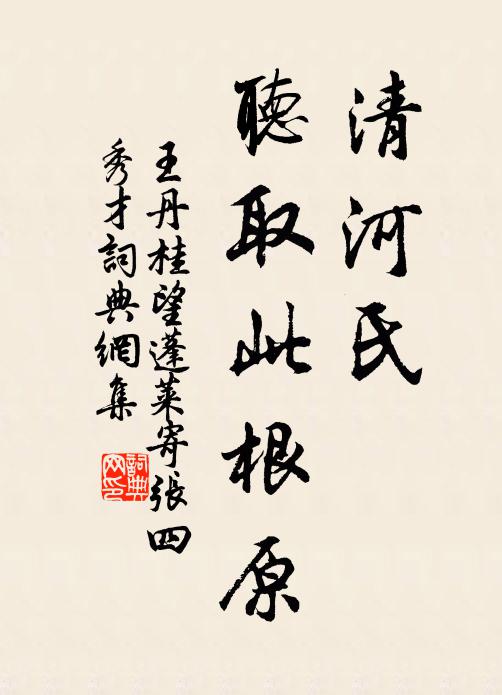 清河氏
聽取此根原
王丹桂望蓬萊寄張四
秀才詞典網集
詞典
网印